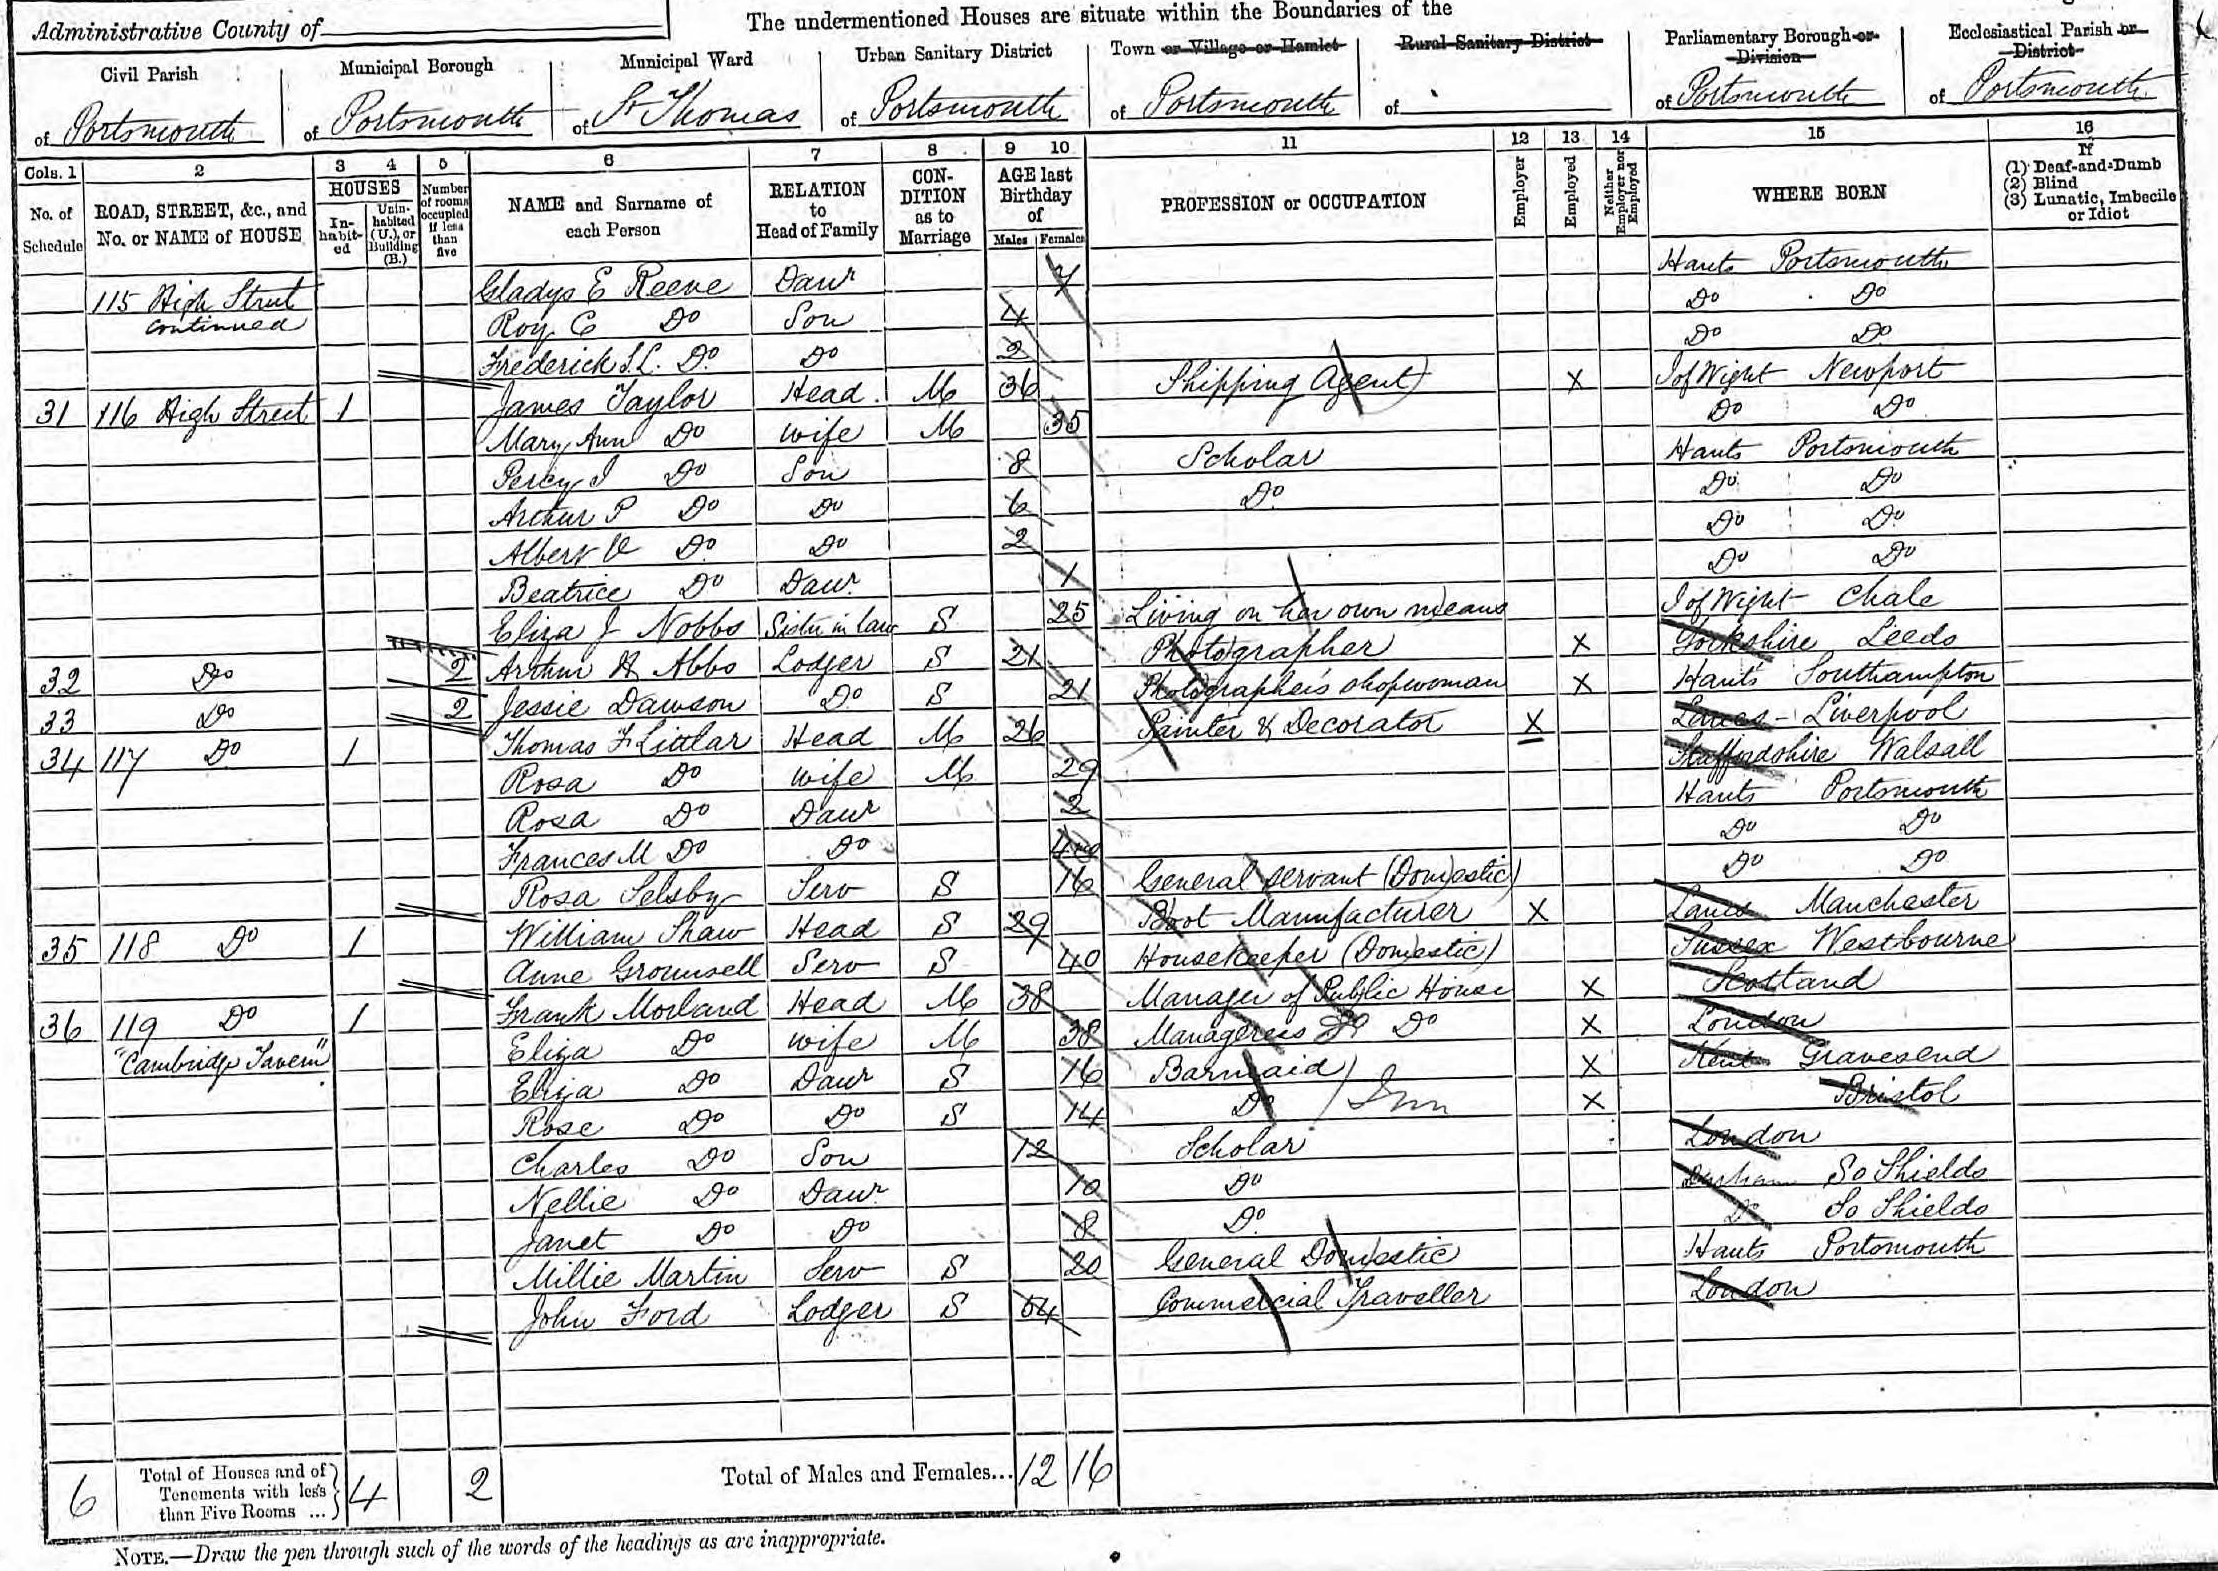 Administrative County of
The undermentioned Houses are situate within the Boundaries of the
Civil Parish
of Portsmouth
Municipal Borough
of Portsmouth
Municipal Ward
of St Thomas
Urban Sanitary District
of Portsmouth
Town or Village or Hamlet
of Portsmouth
Rural Sanitary District
of
Parliamentary Borough or Division
of Portsmouth
Ecclesiastical Parish or District
of Portsmouth
Cols. 1 2 3 4 5 6 7 8 9 10 11 12 13 14 15 16
No. of Schedule
ROAD, STREET, &c., and No. or NAME of HOUSE
HOUSES
Inhabited
Uninhabited (U.), or Building (B.)
Number of rooms occupied if less than five
NAME and Surname of each Person
RELATION to Head of Family
CONDITION as to Marriage
AGE last Birthday of
Males Females
PROFESSION or OCCUPATION
Employer
Employed
Neither Employer nor Employed
WHERE BORN
If
(1) Deaf-and-Dumb
(2) Blind
(3) Lunatic, Imbecile or Idiot
115 High Street continued Gladys E Reeve Daur 7 Hants Portsmouth
Roy C Do Son 4 Do Do
Frederick S.C. Do Do 2 Do Do
31 116 High Street 1 James Taylor Head M 36 Shipping Agent X I of Wight Newport
Mary Ann Do Wife M 35 Do Do
Percy J Do Son 8 Scholar Hants Portsmouth
Arthur P Do Do 6 Do Do Do
Albert V Do Do 2 Do Do
Beatrice Do Daur 1 Do Do
Eliza J Nobbs Sister in law S 25 Living on her own means I of Wight Chale
32 Do 2 Arthur H Abbs Lodger S 21 Photographer X Yorkshire Leeds
33 Do 2 Jessie Dawson Do S 21 Photographer's shopwoman X Hants Southampton
34 117 Do 1 Thomas F Littlar Head M 26 Painter & Decorator X Lancs - Liverpool
Rosa Do Wife M 29 Staffordshire Walsall
Rosa Do Daur 2 Hants Portsmouth
Frances M Do Do 4 mo Do Do
Rosa Selsby Serv S 16 General Servant (Domestic) Do Do
35 118 Do 1 William Shaw Head S 29 Boot Manufacturer X Lancs Manchester
Anne Grounsell Serv S 40 Housekeeper (Domestic) Sussex Westbourne
36 119 Do 1 Frank Morland Head M 38 Manager of Public House X Scotland
"Cambridge Tavern" Eliza Do Wife M 38 Manageress Do X London
Eliza Do Daur S 16 Barmaid X Kent Gravesend
Rose Do Do S 14 Do Inn X Bristol
Charles Do Son 12 Scholar London
Nellie Do Daur 10 Do Durham So Shields
Janet Do Do 8 Do Do So Shields
Millie Martin Serv S 20 General Domestic Hants Portsmouth
John Ford Lodger S 64 Commercial Traveller London
6 Total of Houses and of Tenements with less than Five Rooms ... 4 2 Total of Males and Females... 12 16
NOTE.—Draw the pen through such of the words of the headings as are inappropriate.